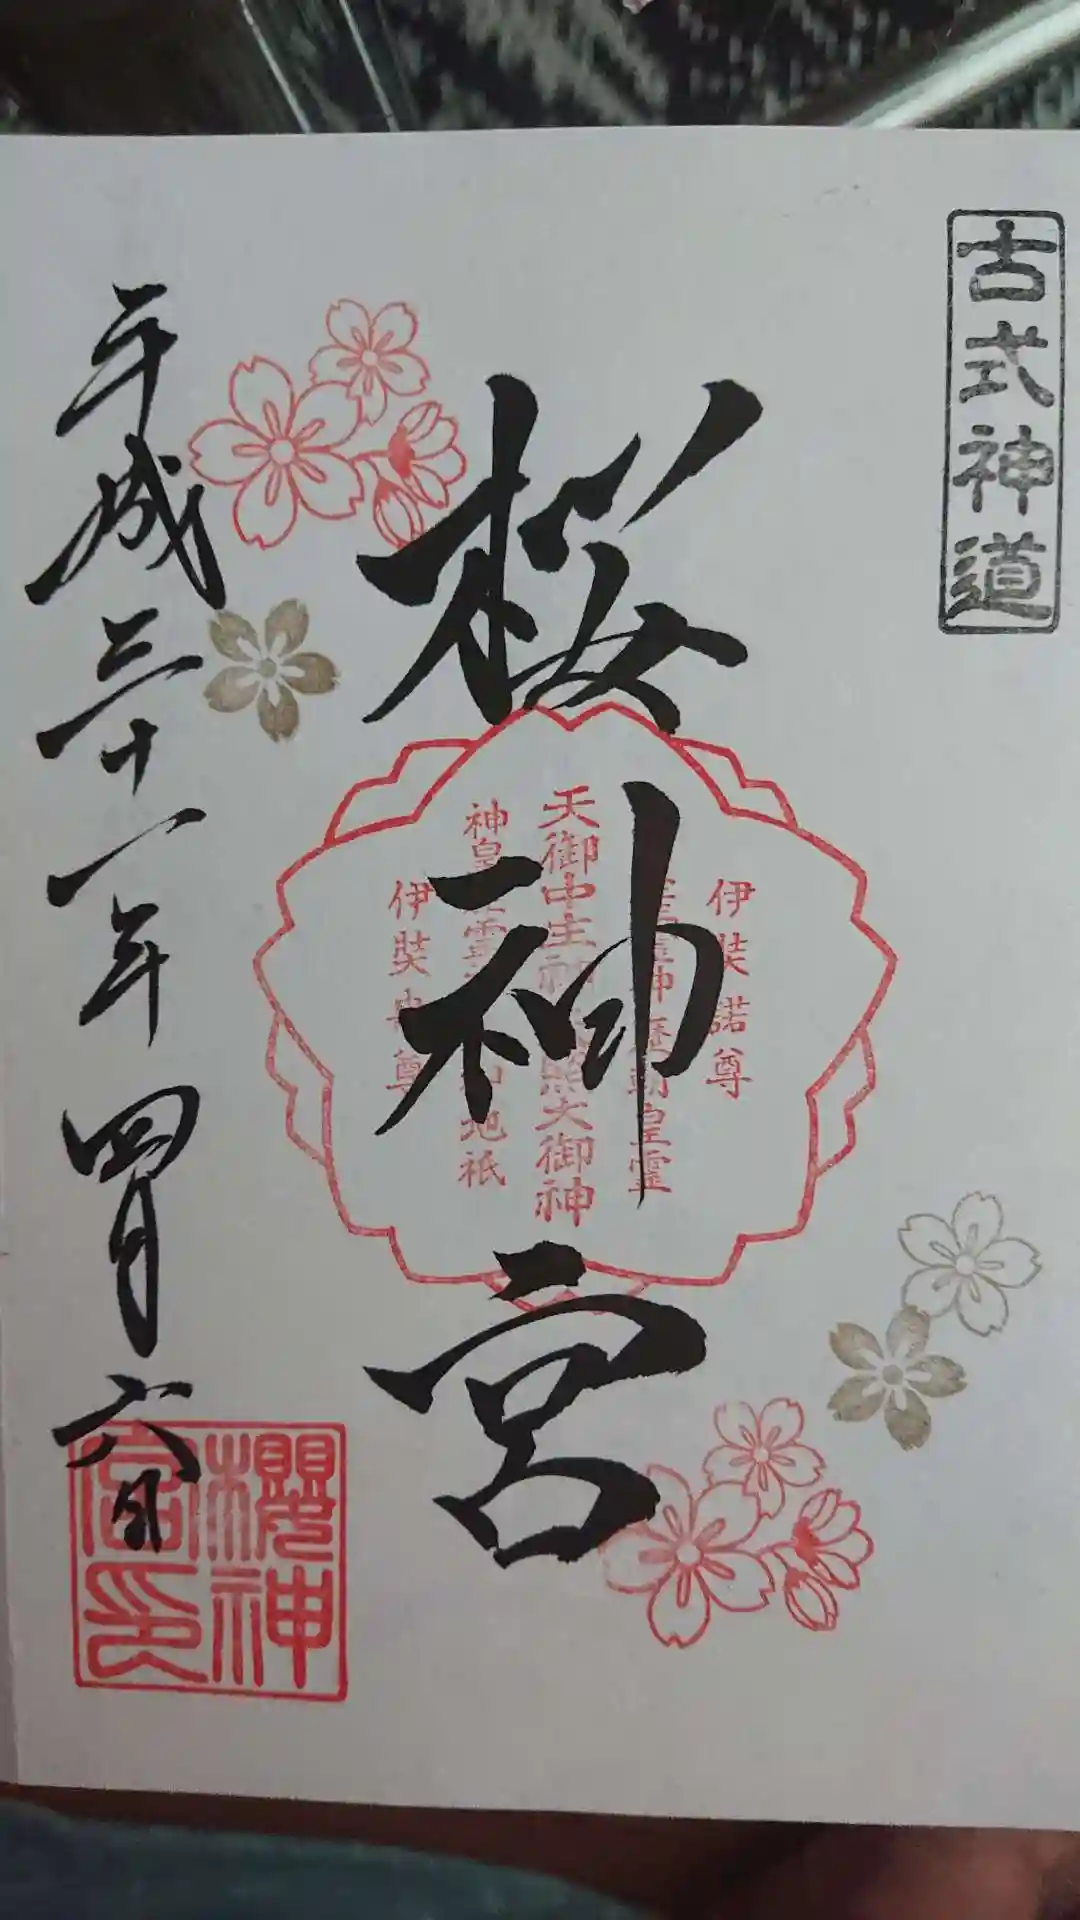 古式神道
桜神宮
伊弉諾尊
神歴朝皇霊
天御中主神 照大御神
神皇 地祇
伊弉 尊
平成三十一年四月六日
櫻神宮印